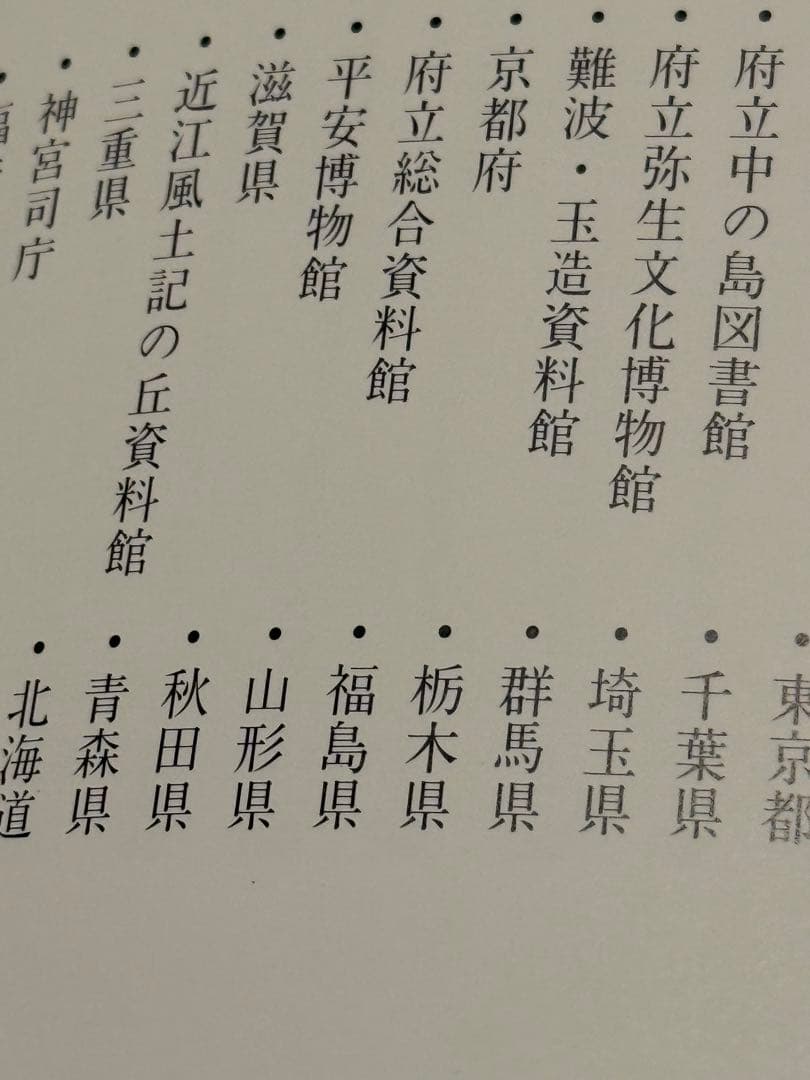 ・府立中の島図書館
・府立弥生文化博物館
・難波・玉造資料館
・京都府
・府立総合資料館
・平安博物館
・滋賀県
・近江風土記の丘資料館
・三重県
・神宮司庁
・東京都
・千葉県
・埼玉県
・群馬県
・栃木県
・福島県
・山形県
・秋田県
・青森県
・北海道